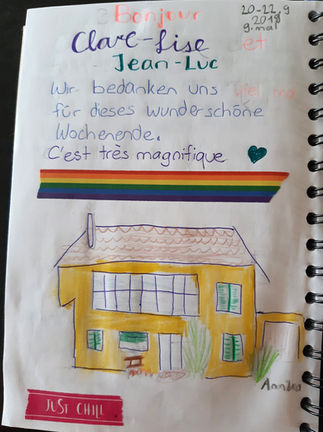 Bonjour
20-22.9
2019
9. mal
Clare-Lise et
Jean-Luc
Wir bedanken uns viel mal
für dieses wunderschöne
Wochenende.
C'est très magnifique
JUST CHILL